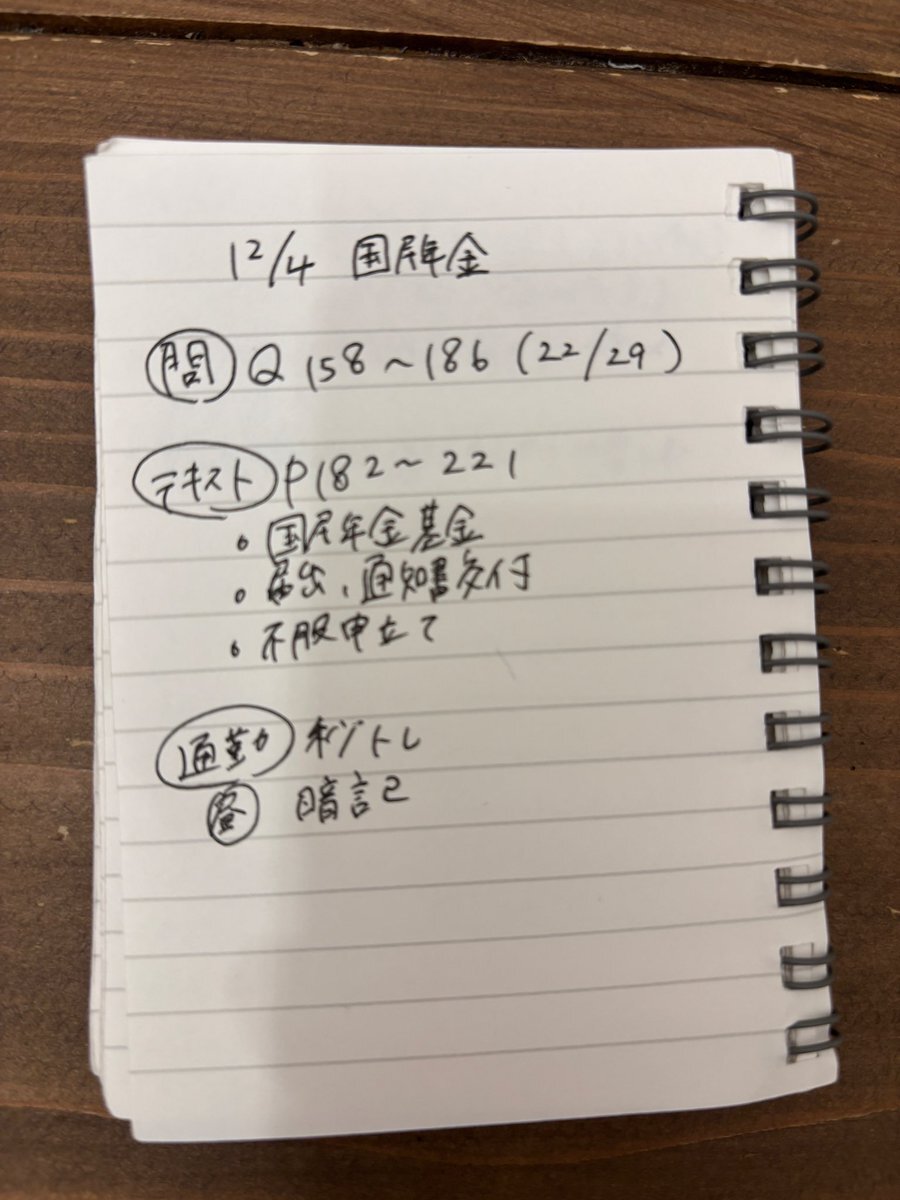 12/4 国民年金
問 Q 158～186 (22/29)
テキスト P182～221
・国民年金基金
・届出、通知書交付
・不服申立て
通勤 秒トレ
昼 暗記